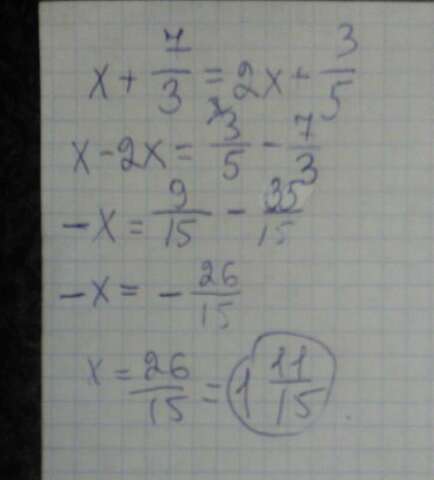 x + 7/3 = 2x + 3/5
x - 2x = 3/5 - 7/3
-x = 9/15 - 35/15
-x = - 26/15
x = 26/15 = 1 11/15.